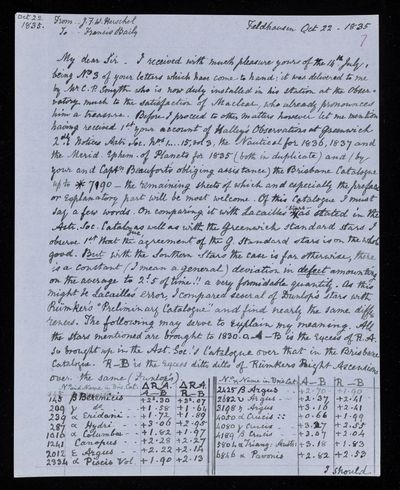 Oct 22.
1835.
From J.F.W. Herschel
To Francis Baily
Feldhausen Oct 22 - 1835
7
My dear Sir. I received with much pleasure yours of the 14th July,
being No 3 of your letters which have come to hand: it was delivered to me
by Mr C. P. Smyth who is now duly installed in his station at the Obser-
vatory much to the satisfaction of Maclear, who already pronounces
him a treasure. Before I proceed to other matters however let me mention
having received 1st your account of Halley's Observations at Greenwich
2nd Notices Astr. Soc. Nos 15, 3, the Nautical for 1836, 1837 and
the Merid. Ephem. of Planets for 1835 (both in duplicate) and (by
your and Captn Beaufort's obliging assistance) the Brisbane Catalogue
up to * 7190 - the remaining sheets of which and especially the preface
or Explanatory part will be most welcome. Of this Catalogue I must
say a few words. On comparing it with Lacaille's stars as stated in the
Ast. Soc. Catalogue as well as with the Greenwich standard stars I
observe 1st that the agreement of the G. Standard stars is on the whole
good. But with the Southern Stars the case is far otherwise, there
is a constant (I mean a general) deviation in defect amounting
on the average to 2s.5 of time!! a very formidable quantity. As this
might be Lacaille's error, I compared several of Dunlop's stars with
Rümker's "Preliminary Catalogue" and find nearly the same diffe
rences. The following may serve to explain my meaning. All
the stars mentioned are brought to 1830.0. A-B is the Excess of R.A.
so brought up in the Ast. Soc.'s Catalogue over that in the Brisbane
Catalogue. R-B is the Excess ditto ditto of Rümkers Right Ascension
over the same (Dunlop's)
No and Name in Bris Cat. ΔR.A. A-B ΔR.A. R-B
145 β +2.30 +2.07
209 γ +1.58 +1.64
239 α Eridani +1.72 +1.89
287 α Hydri +3.06 +2.95
1016 α Columbae +1.82 +1.97
1241 Canopus +2.28 +2.27
2012 ε Argus +2.22 +2.14
2334 α Piscis Vol. +1.90 +2.13
No & Name in Bris Cat. A-B R-B
2425 β Argus
2682 Argus +2.37 +2.41
3198 η Argus +3.16 +2.41
4050 α Crucis +0.66 +1.69
4080 γ Crucis +3.27 +2.55
4189 β Crucis +3.07 +2.04
5804 α Triang: Austr: +3.18 +1.83
6846 α Pavonis +2.82 +2.53
I should